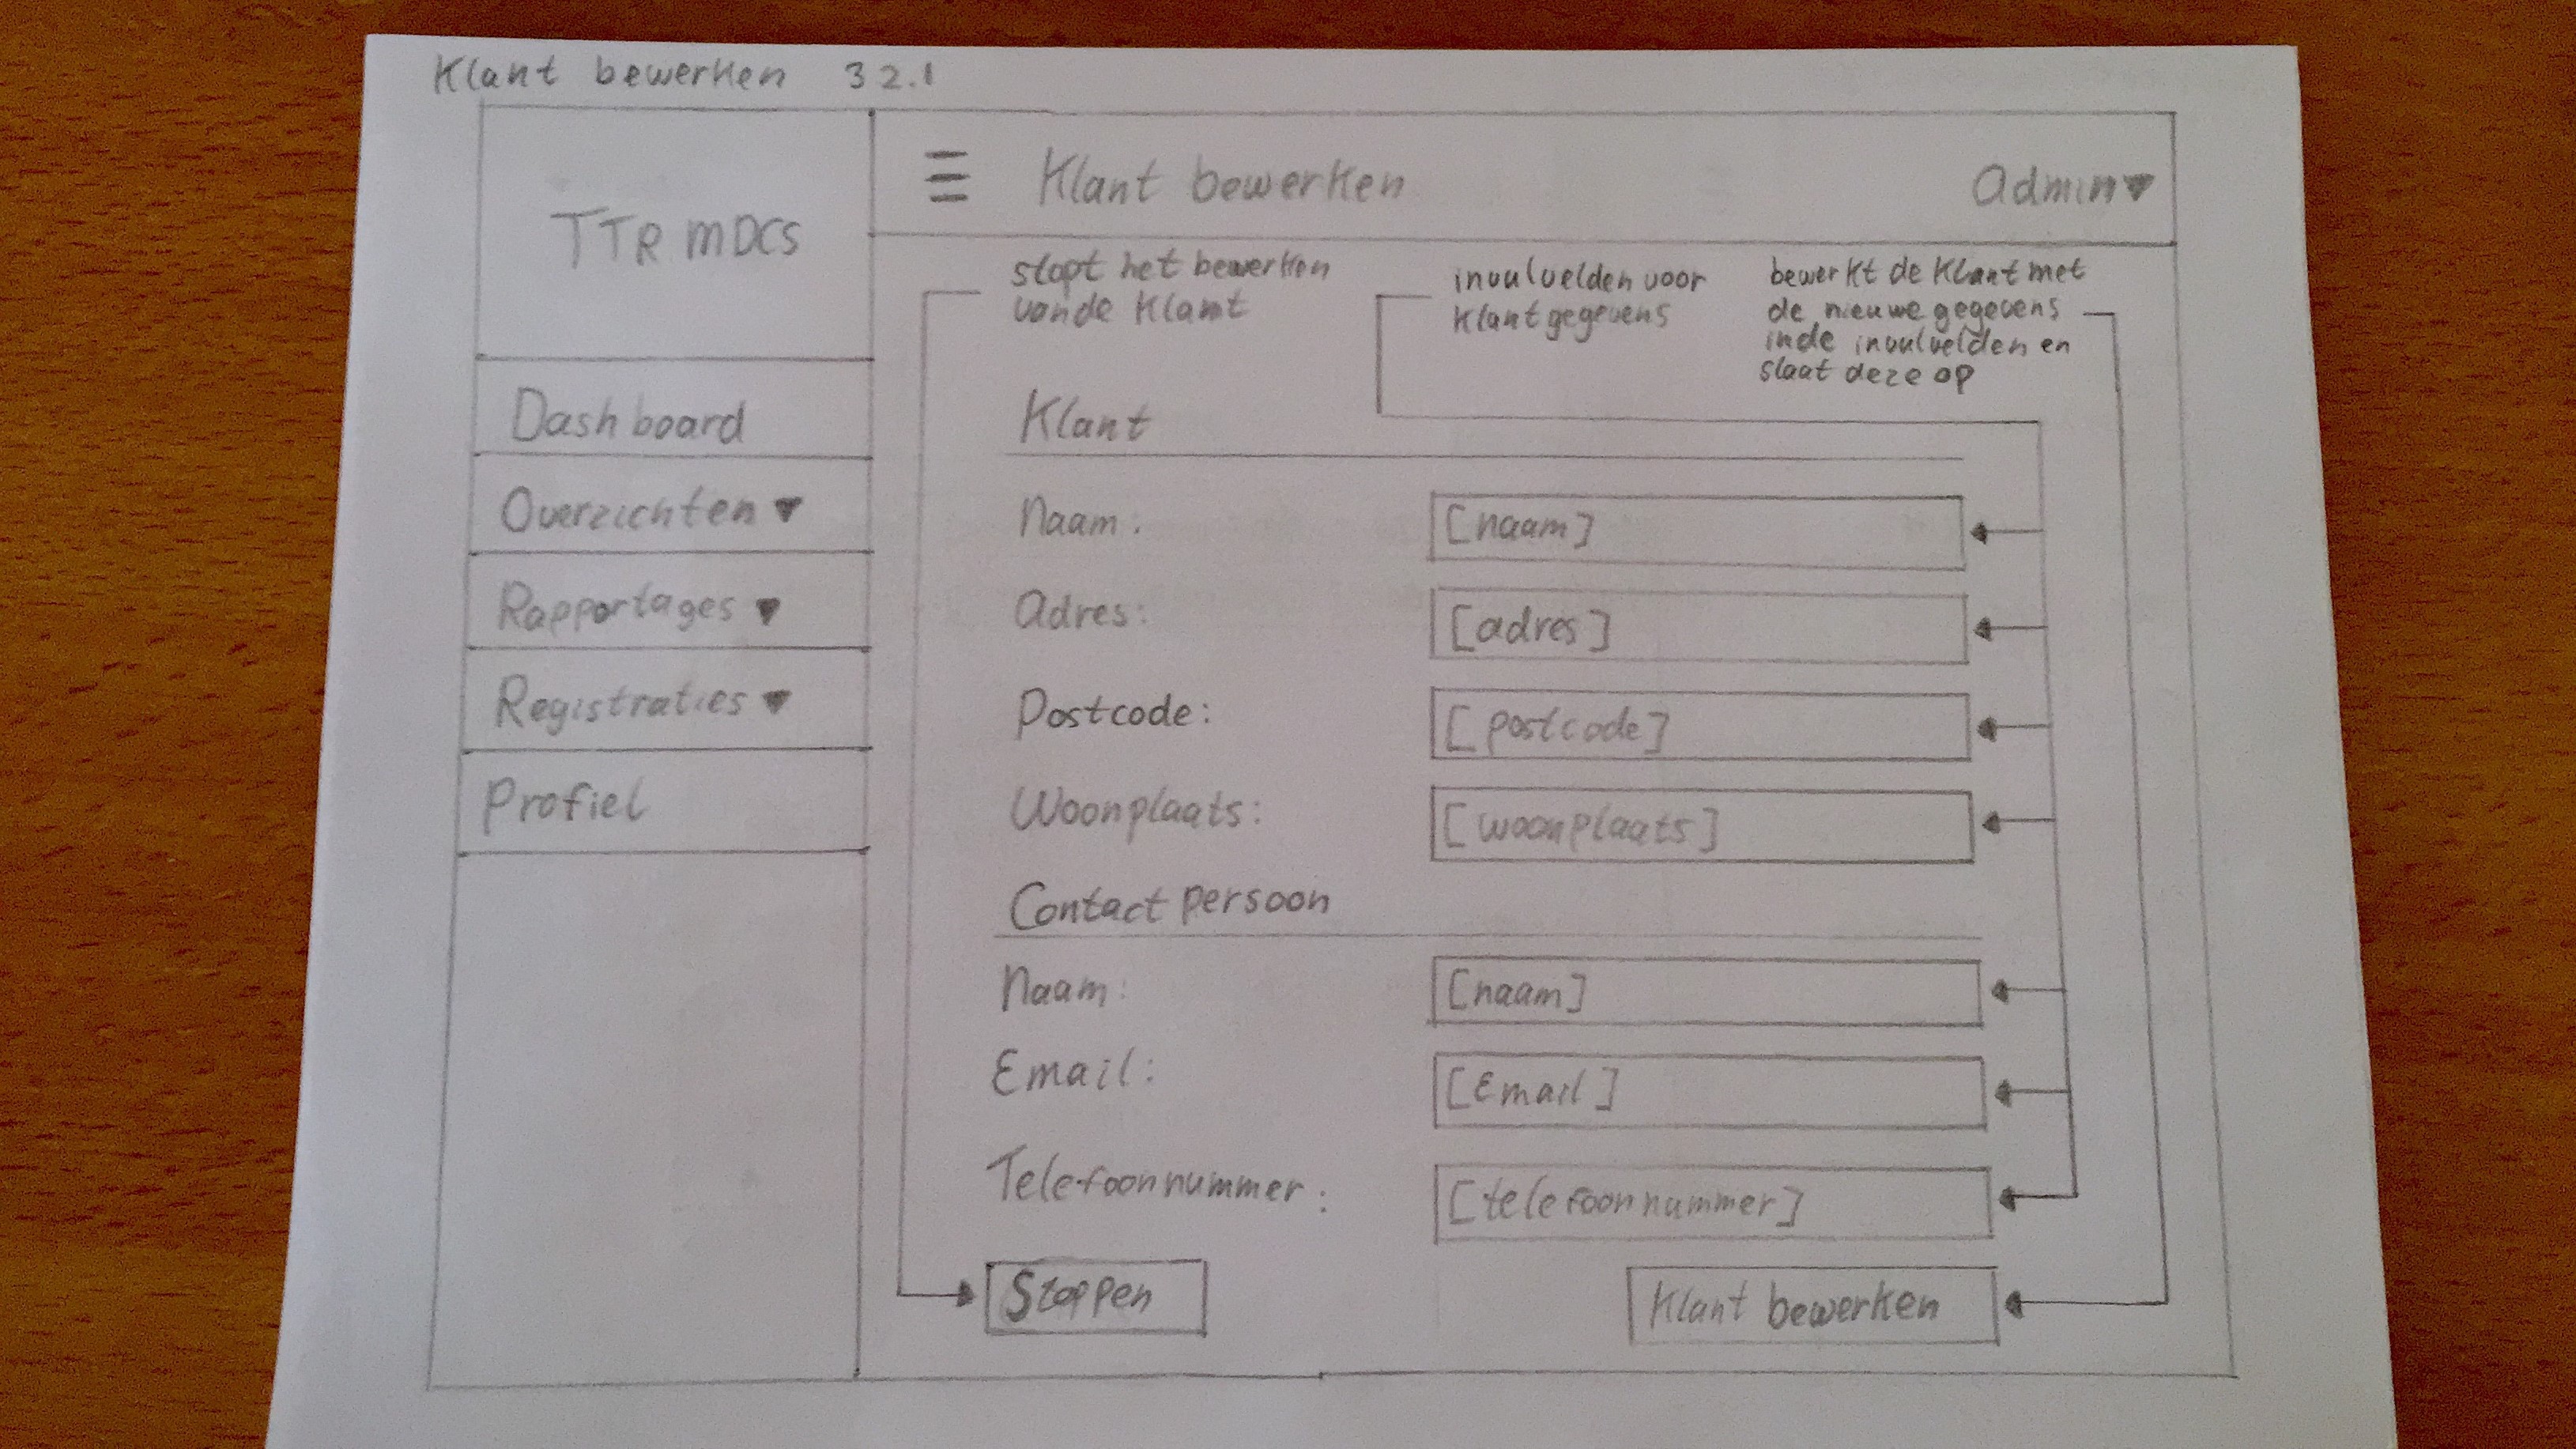 Klant bewerken 3 2.1
TTR MDCS
Klant bewerken
Admin
Dashboard
Overzichten
Rapportages
Registraties
Profiel
stopt het bewerken
vande Klant
invulvelden voor
Klantgegevens
bewerkt de Klant met
de nieuwe gegevens
inde invulvelden en
slaat deze op
Klant
Naam: [naam]
Adres: [adres]
Postcode: [postcode]
Woonplaats: [woonplaats]
Contactpersoon
Naam: [naam]
Email: [Email]
Telefoonnummer: [telefoonnummer]
Stoppen
Klant bewerken